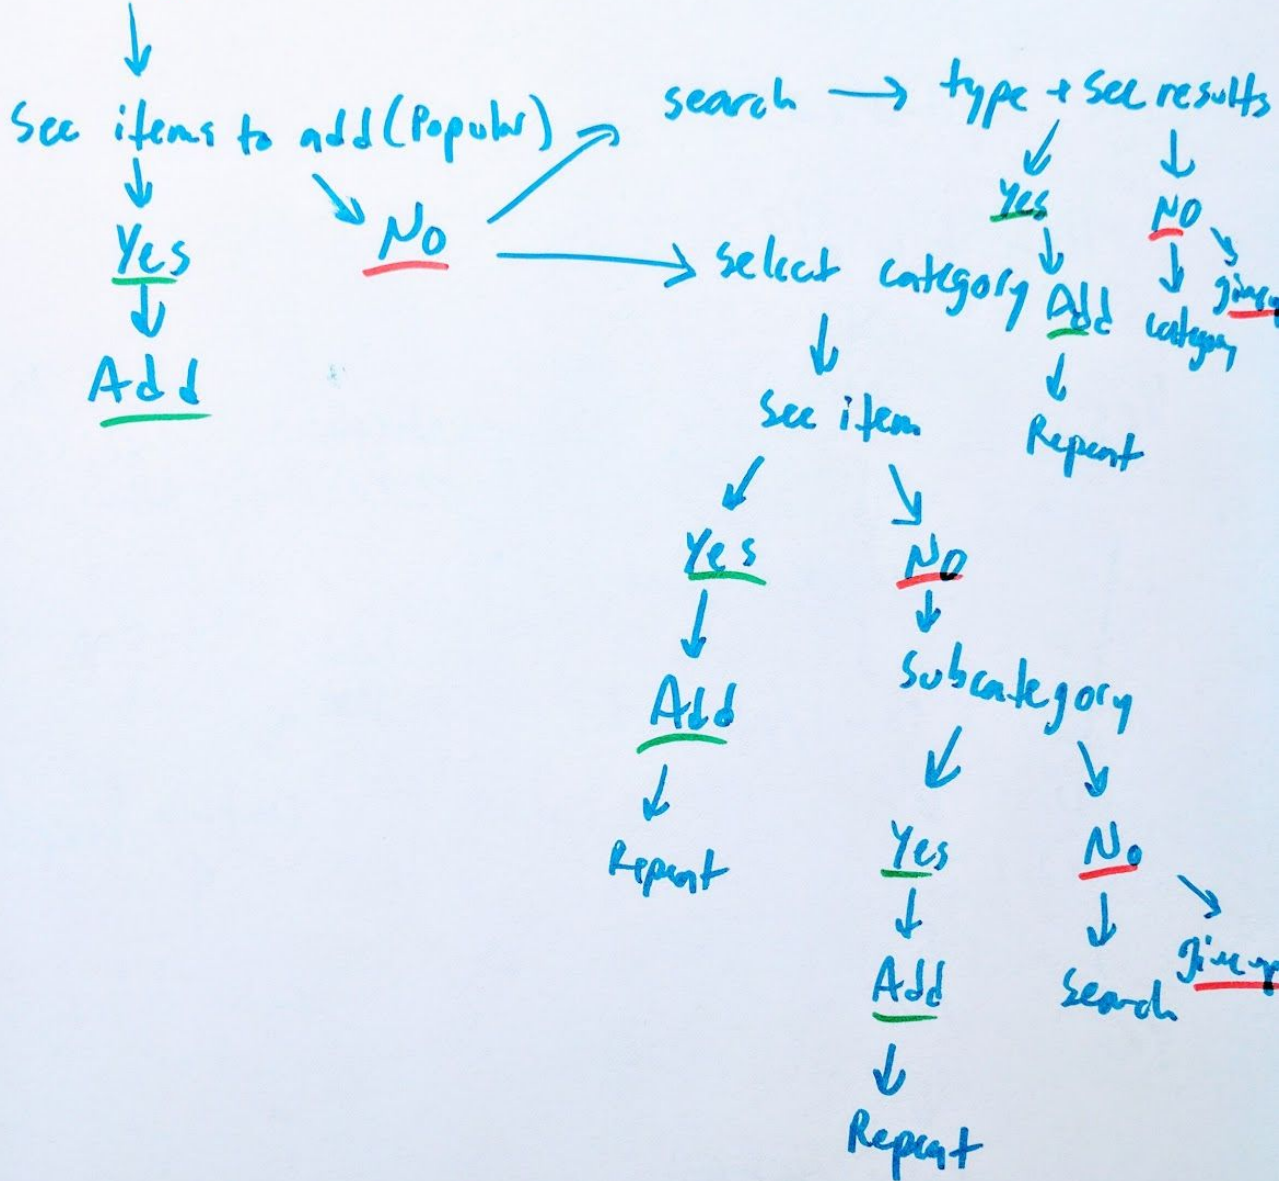 See items to add (Popular)
Yes
Add
No
search → type + See results
Yes
Add
Repeat
No
category
give up
select category
See item
Yes
Add
Repeat
No
Subcategory
Yes
Add
Repeat
No
Search
give up